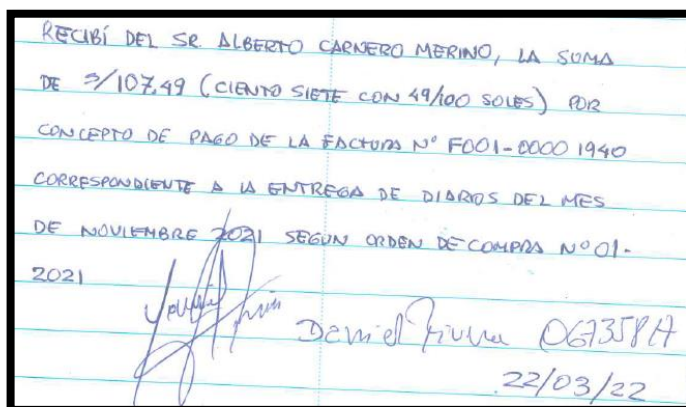 RECIBÍ DEL SR. ALBERTO CARNERO MERINO, LA SUMA
DE S/107.49 (CIENTO SIETE CON 49/100 SOLES) POR
CONCEPTO DE PAGO DE LA FACTURA N° F001-0000 1940
CORRESPONDIENTE A LA ENTREGA DE DIARIOS DEL MES
DE NOVIEMBRE 2021 SEGUN ORDEN DE COMPRA N° 01-
2021
Daniel
22/03/22